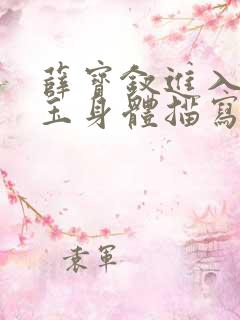 薛寶釵進入
玉身體描寫
袁軍